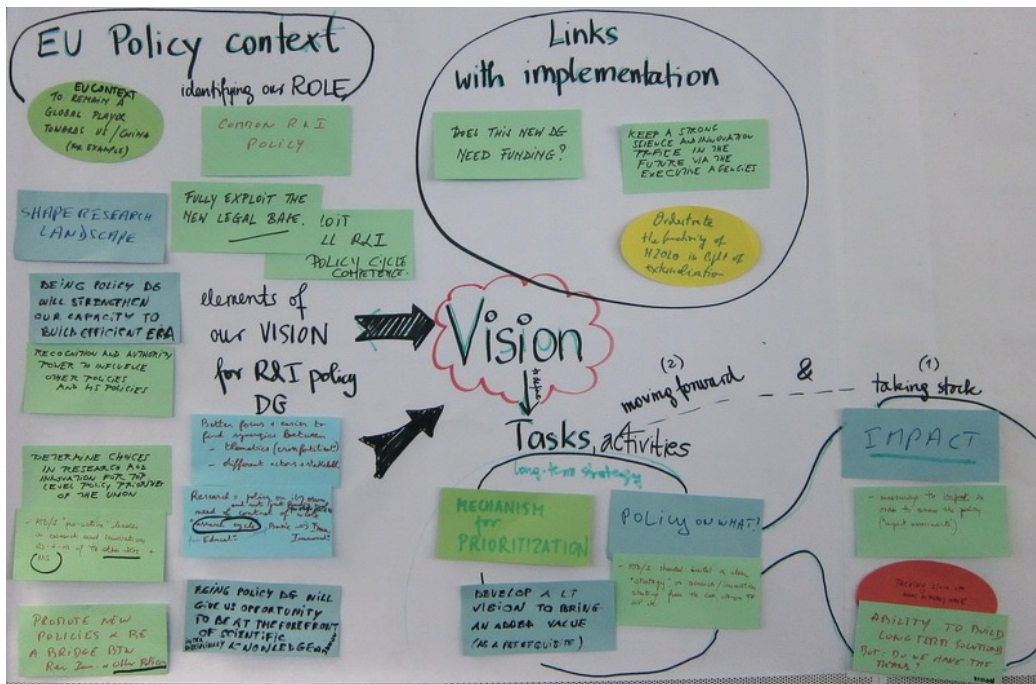 EU Policy context
identifying our ROLE
EU CONTEXT
TO REMAIN A
GLOBAL PLAYER
TOWARDS US/CHINA
(FOR EXAMPLE)
COMMON R&I
POLICY
SHAPE RESEARCH
LANDSCAPE
FULLY EXPLOIT THE
NEW LEGAL BASE.
LOIT
LL R&I
POLICY CYCLE
COMPETENCE.
BEING POLICY DG
WILL STRENGTHEN
OUR CAPACITY TO
BUILD EFFICIENT ERA
RECOGNITION AND AUTHORITY
POWER TO INFLUENCE
OTHER POLICIES
AND MS POLICIES
elements of
our VISION
for R&I policy
DG
DETERMINE CHOICES
IN RESEARCH AND
INNOVATION FOR TOP
LEVEL POLICY PRIORITIES
OF THE UNION
Better focus + easier to
find synergies between
- thematics
- different actors +
Research + policy on its own
need of control of whole
"research cycle"
PROMOTE NEW
POLICIES &
A BRIDGE BTN
other Policies
BEING POLICY DG WILL
GIVE US OPPORTUNITY
TO BE AT THE FOREFRONT
OF SCIENTIFIC
KNOWLEDGE
Links
with implementation
DOES THIS NEW DG
NEED FUNDING?
KEEP A STRONG
SCIENCE AND INNOVATION
OFFICE IN THE
FUTURE VIA THE
EXECUTIVE AGENCIES
Orchestrate
the functioning of
H2020 in light of
externalisation
Vision
to define
Tasks, activities
long-term strategy
(2)
moving forward
&
(1)
taking stock
MECHANISM
for
PRIORITIZATION
POLICY ON WHAT?
DEVELOP A LT
VISION TO BRING
AN ADDED VALUE
(AS A PREREQUISITE)
"strategy" on research/innovation
IMPACT
- measuring the impact in
order to assess the policy
("impact assessments")
ABILITY TO BUILD
LONG TERM SOLUTIONS
BUT: DO WE HAVE THE
MEANS?